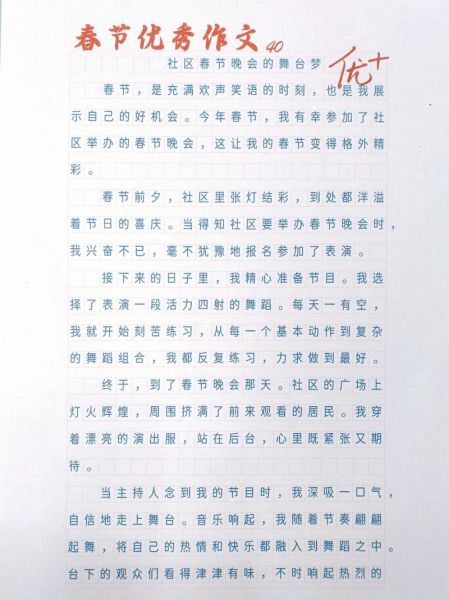 春节优秀作文40
优+
社区春节晚会的舞台梦
春节，是充满欢声笑语的时刻，也是我展
示自己的好机会。今年春节，我有幸参加了社
区举办的春节晚会，这让我的春节变得格外精
彩。
春节前夕，社区里张灯结彩，到处都洋溢
着节日的喜庆。当得知社区要举办春节晚会时，
我兴奋不已，毫不犹豫地报名参加了表演。
接下来的日子里，我精心准备节目。我选
择了表演一段活力四射的舞蹈。每天一有空，
我就开始刻苦练习，从每一个基本动作到复杂
的舞蹈组合，我都反复练习，力求做到最好。
终于，到了春节晚会那天。社区的广场上
灯火辉煌，周围挤满了前来观看的居民。我穿
着漂亮的演出服，站在后台，心里既紧张又期
待。
当主持人念到我的节目时，我深吸一口气，
自信地走上舞台。音乐响起，我随着节奏翩翩
起舞，将自己的热情和快乐都融入到舞蹈之中。
台下的观众们看得津津有味，不时响起热烈的